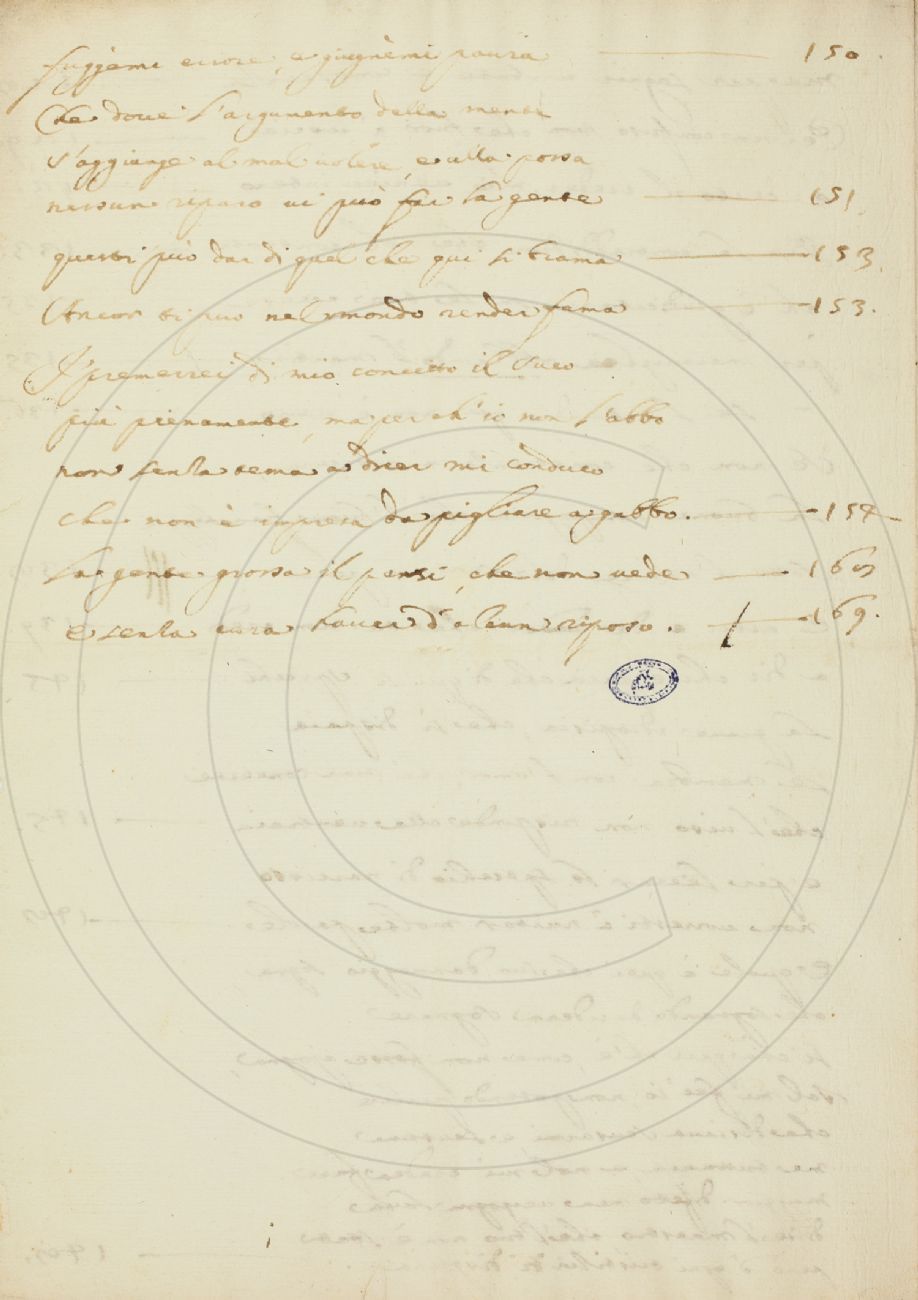 fuggèmi errore, e giugnèmi paura 150.
Che dove l'argumento della mente
s'aggiunge al mal volere, e alla possa
nessun riparo vi può far la gente 151.
questi può dar di quel che qui si brama 153.
Ancor ti può nel mondo render fama 153.
I' premerrei di mio concetto il suco
più pienamente, ma perch' io non l'abbo
non senza tema a dicer mi conduco
che non è impresa da pigliare a gabbo. 157
La gente grossa il pensi, che non vede 160
e senza cura haver d'alcun riposo. 169.